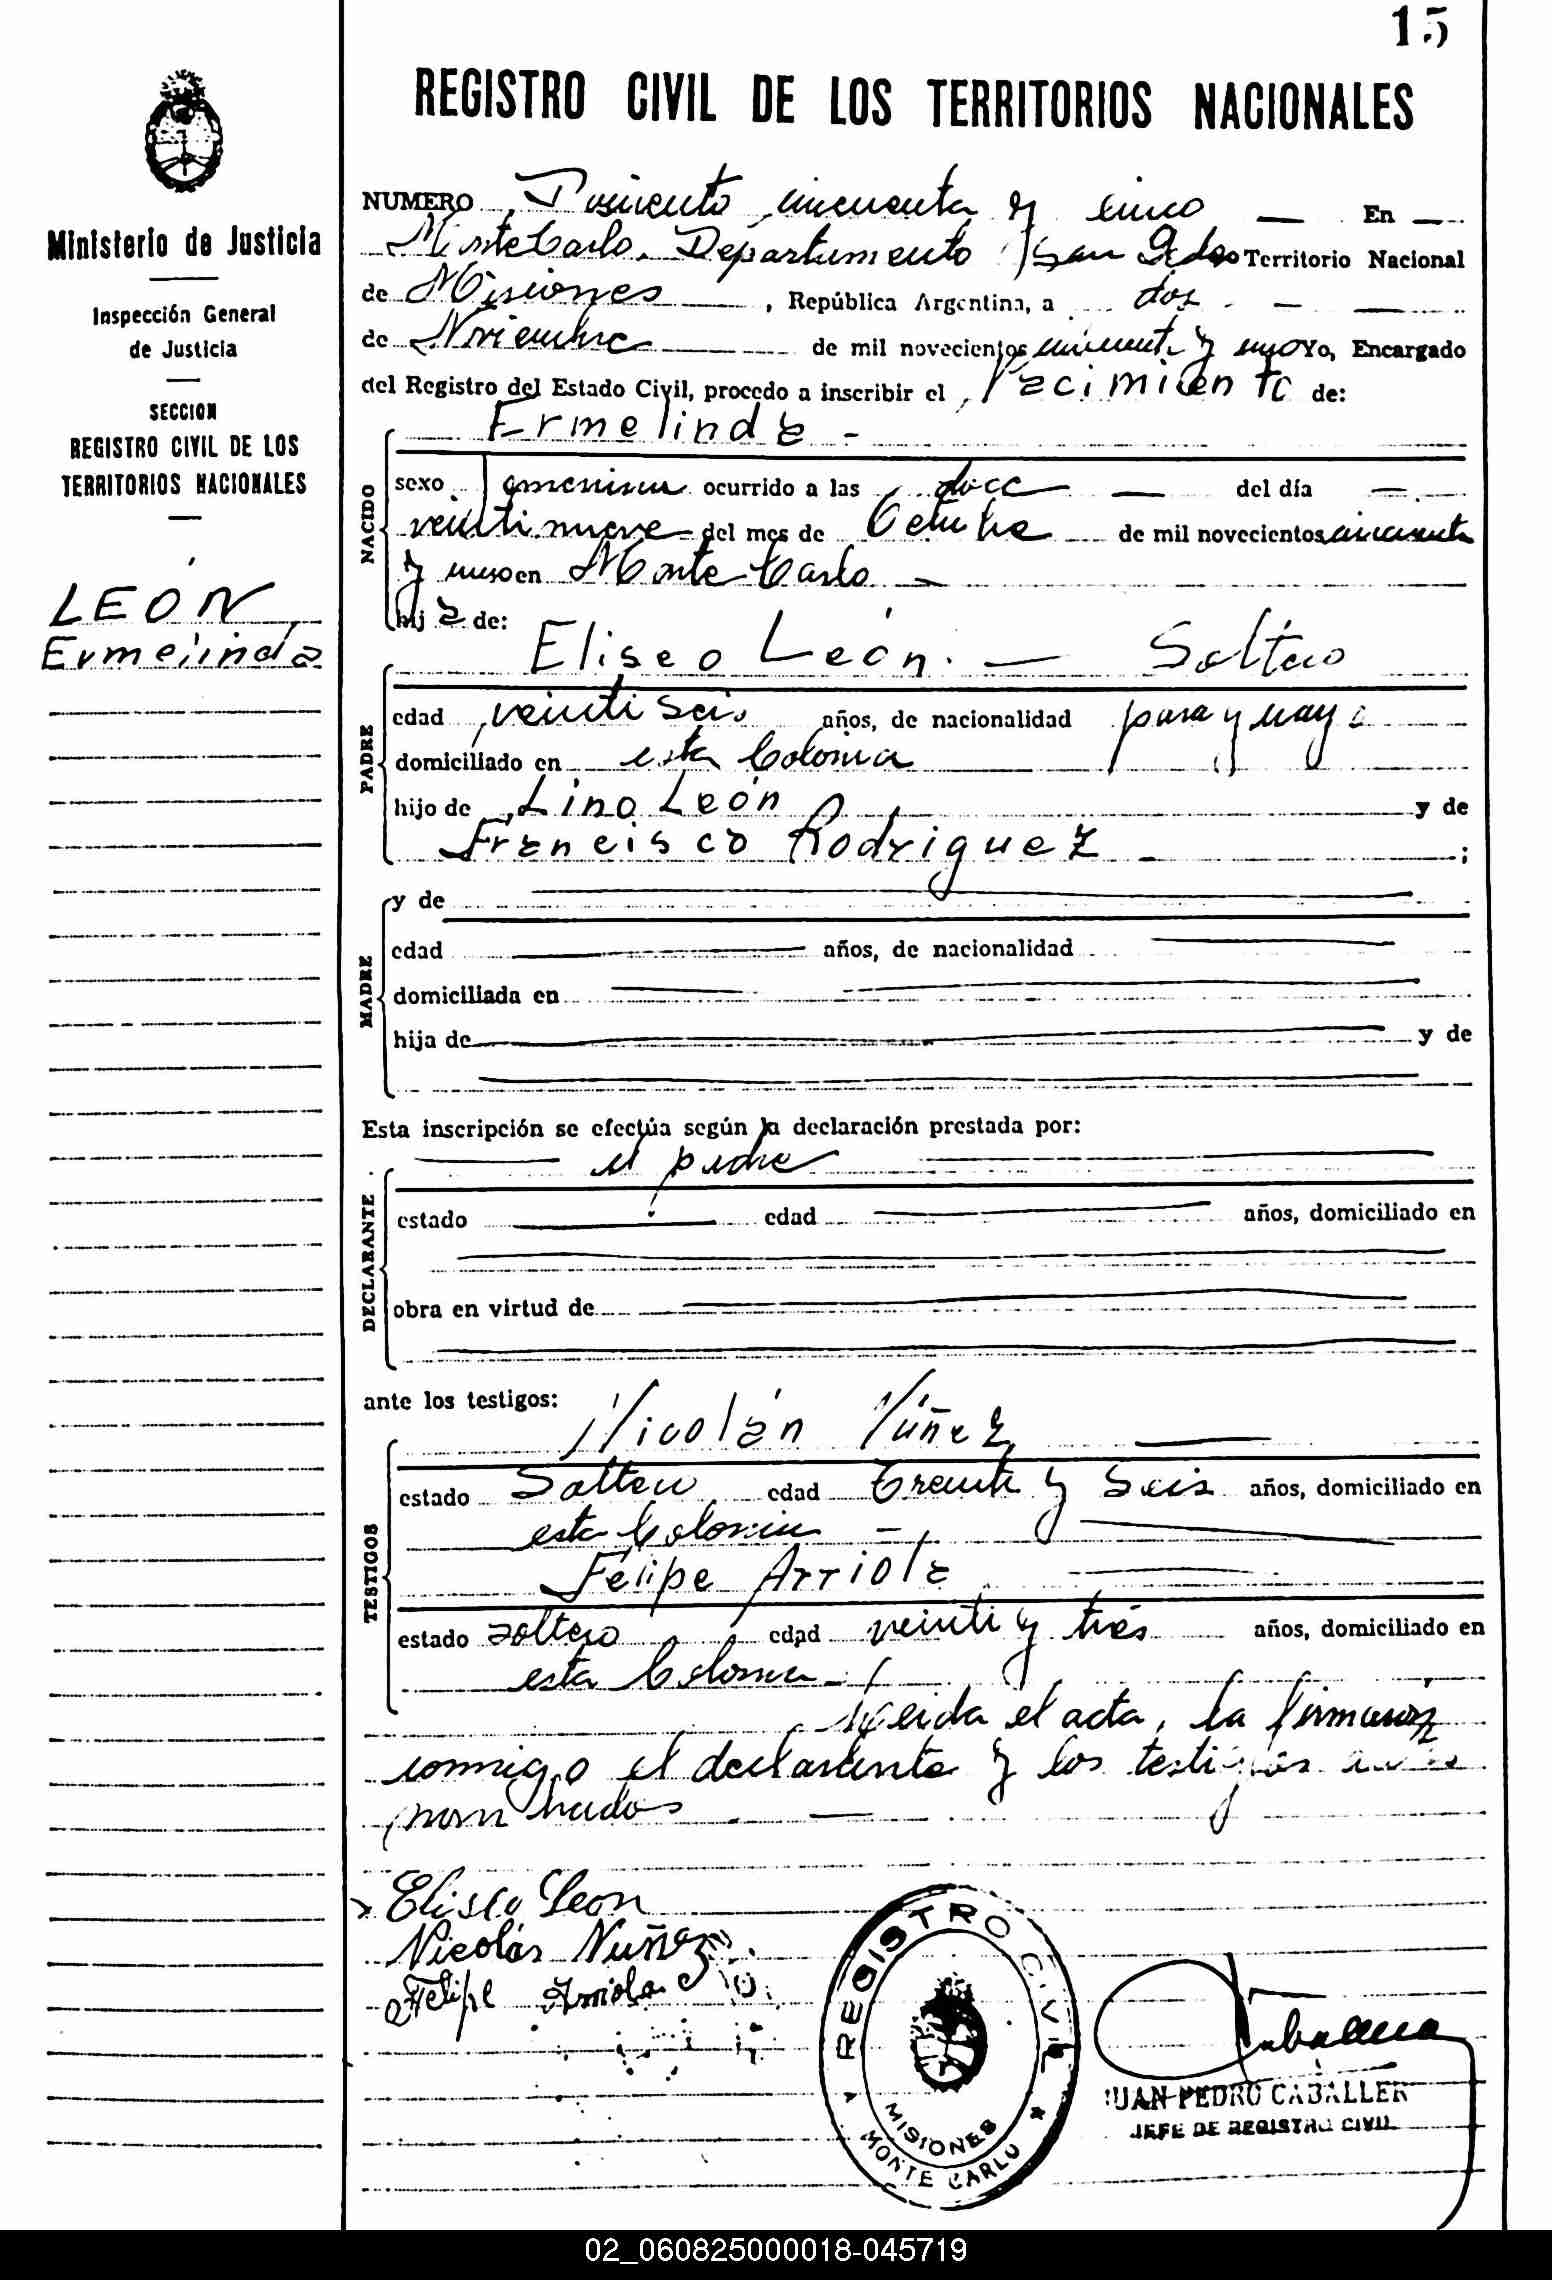 15
REGISTRO CIVIL DE LOS TERRITORIOS NACIONALES
Ministerio de Justicia
Inspección General
de Justicia
SECCION
REGISTRO CIVIL DE LOS
TERRITORIOS NACIONALES
LEÓN
Ermelinda
NUMERO Dosciento cincuenta y cinco — En —
MonteCarlo. Departamento San Pedro Territorio Nacional
de Misiones —, República Argentina, a dos — —
de Noviembre — de mil novecientos cincuenta y uno Yo, Encargado
del Registro del Estado Civil, procedo a inscribir el Nacimiento de:
Ermelinda -
NACIDO
sexo femenino ocurrido a las doce — — del día —
veintinueve del mes de Octubre de mil novecientos cincuenta
y uno en Monte Carlo —
hija de:
Eliseo León. — Soltero
PADRE
edad veintiseis años, de nacionalidad paraguaya
domiciliado en esta Colonia
hijo de Lino León y de
Francisco Rodriguez — ;
MADRE
y de
edad años, de nacionalidad
domiciliada en
hija de y de
Esta inscripción se efectúa según la declaración prestada por:
DECLARANTE
— el padre —
estado edad años, domiciliado en
obra en virtud de
ante los testigos:
Nicolán Núñez —
TESTIGOS
estado Soltero edad Treinta y Seis años, domiciliado en
esta Colonia —
Felipe Arriola —
estado soltero edad veinti y trés años, domiciliado en
esta Colonia —
Leida el acta, la firmaron
conmigo el declarante y los testigos
nombrados —
Eliseo Leon
Nicolás Nuñez
Felipe Arriola
REGISTRO CIVIL
MISIONES
MONTE CARLO
Caballero
JUAN PEDRO CABALLER
JEFE DE REGISTRO CIVIL
02_060825000018-045719